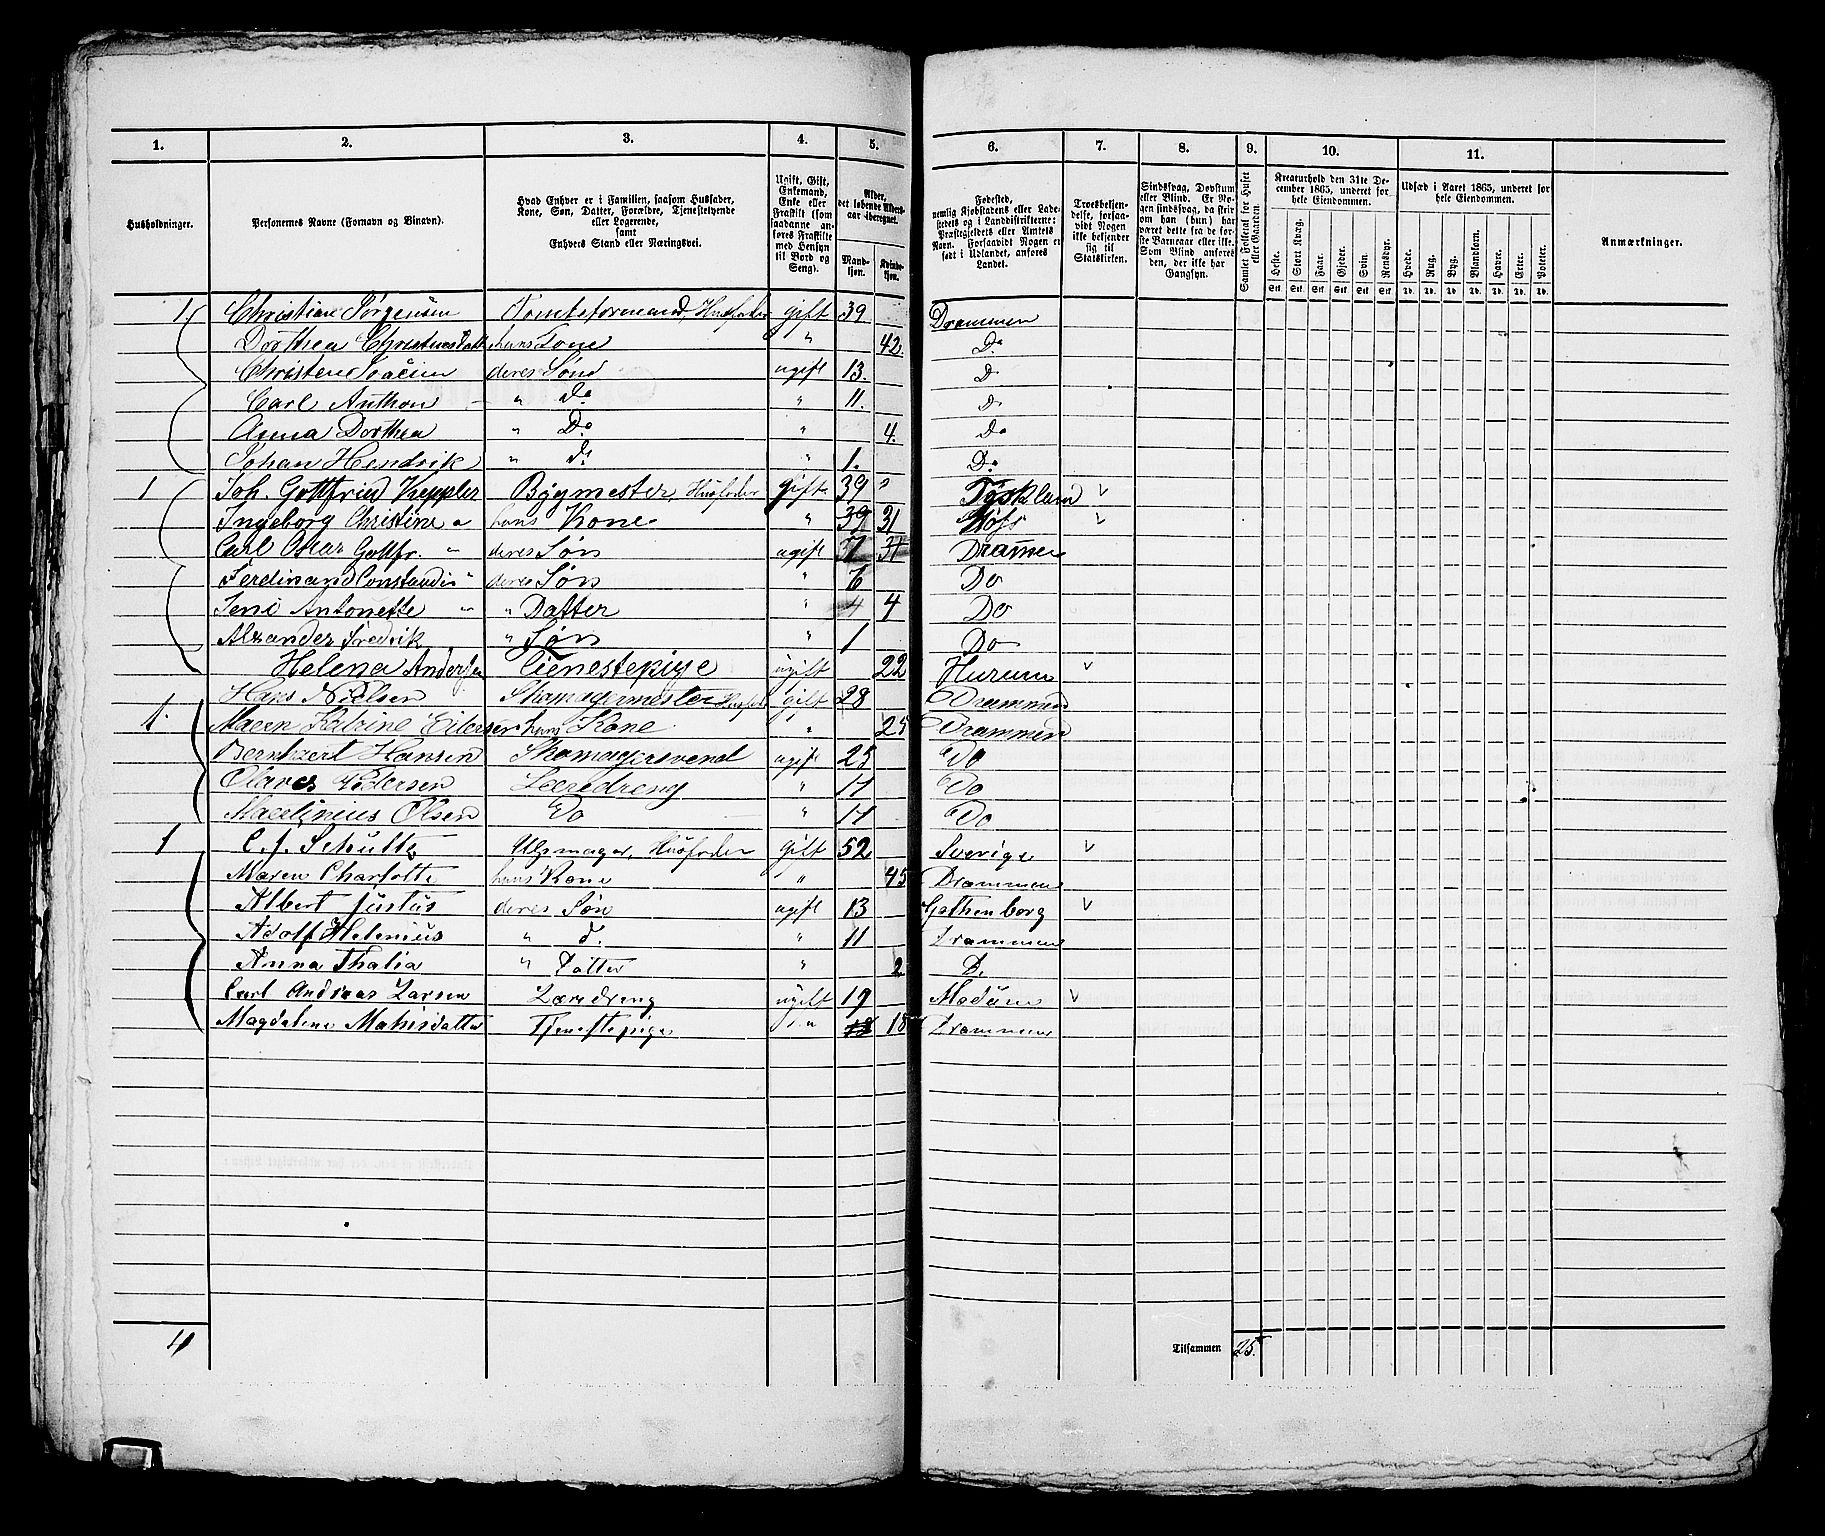 1. 2. 3. 4. 5. 6. 7. 8. 9. 10. 11.
Husholdninger.
Personernes Navne (Fornavn og Binavn).
Hvad Enhver er i Familien, saasom Husfader,
Kone, Søn, Datter, Forældre, Tjenestetyende
eller Logerende,
samt
Enhvers Stand eller Næringsvei.
Ugift, Gift,
Enkemand,
Enke eller
Fraskilt (som
saadanne an-
føres Fraskilte
med Hensyn
til Bord og
Seng).
Alder,
det løbende Alders-
aar iberegnet.
Mand-
kjøn.
Kvinde-
kjøn.
Fødested,
nemlig Kjøbstadens eller Lade-
stedets og i Landdistrikterne:
Præstegjeldets eller Amtets
Navn. Forsaavidt Nogen er
født i Udlandet, anføres
Landet.
Troesbekjen-
delse, forsaa-
vidt Nogen
ikke bekjender
sig til
Statskirken.
Sindssvag, Døvstum
eller Blind. Er No-
gen sindssvag, da skri-
ves, om han (hun) har
været dette fra de før-
ste Barneaar eller ikke.
Som Blind anføres
den, der ikke har
Gangsyn.
Samlet Folketal for Huset
eller Gaarden.
Kreaturhold den 31te De-
cember 1865, underet for
hele Eiendommen.
Heste. Stort Kvæg. Faar. Gjeder. Svin. Rensdyr.
Stk. Stk. Stk. Stk. Stk. Stk.
Udsæd i Aaret 1865, underet for
hele Eiendommen.
Hvede. Rug. Byg. Blandkorn. Havre. Erter. Poteter.
Td. Td. Td. Td. Td. Td. Td.
Anmærkninger.
1. Christian Jørgensen Tomteformand, Husfader gift 39 Drammen
Dorthea Christensdatt hans Kone " 42. Do
Christen Joacim deres Sønd ugift 13. Do
Carl Anthon " do " 11. Do
Anna Dorthea " Do " 4. Do
Johan Hendrik " do " 1. Do
1 Joh. Gottfried Keppler Bøgmester, Husfader gift 39 " Tyskland v
Ingeborg Christine " hans Kone " 39 31 Hofs v
Carl Oscar Gottfr. " deres Søn ugift Drammen
Ferdinand Constandin " deres Søn " 6 Do
Jeni Antonette " " Datter " 4 4 Do
Alxander Fredrik " Søn " 1 Do
Helena Andersen Tienestepige ugift 22 Hurum v
1. Hans Nielsen Skomagermester Husfad gift 28 Drammen
Maren Katrine Eilersen hans Kone " 25 Drammen
Bernhart Hansen Skomagersvend ugift 25 Do
Olaves Pedersen Læredreng " 17 Do
Macelinius Olsen Do " 17 Do
1 C. J. Schutte Uhrmager, Husfader gift 52 Sverige v
Maren Charlotte hans Kone " 45 Drammen
Albert Justus deres Søn ugift 13 Gothenborg v
Adolf Helenius " d. " 11 Drammen
Anna Thalia " Datter " 2 D.
Carl Andreas Larsen Læredreng ugift 19 Modum v
Magdalene Mathisdatter Tjenestepige " 18 18 Drammen
4 Tilsammen 25.